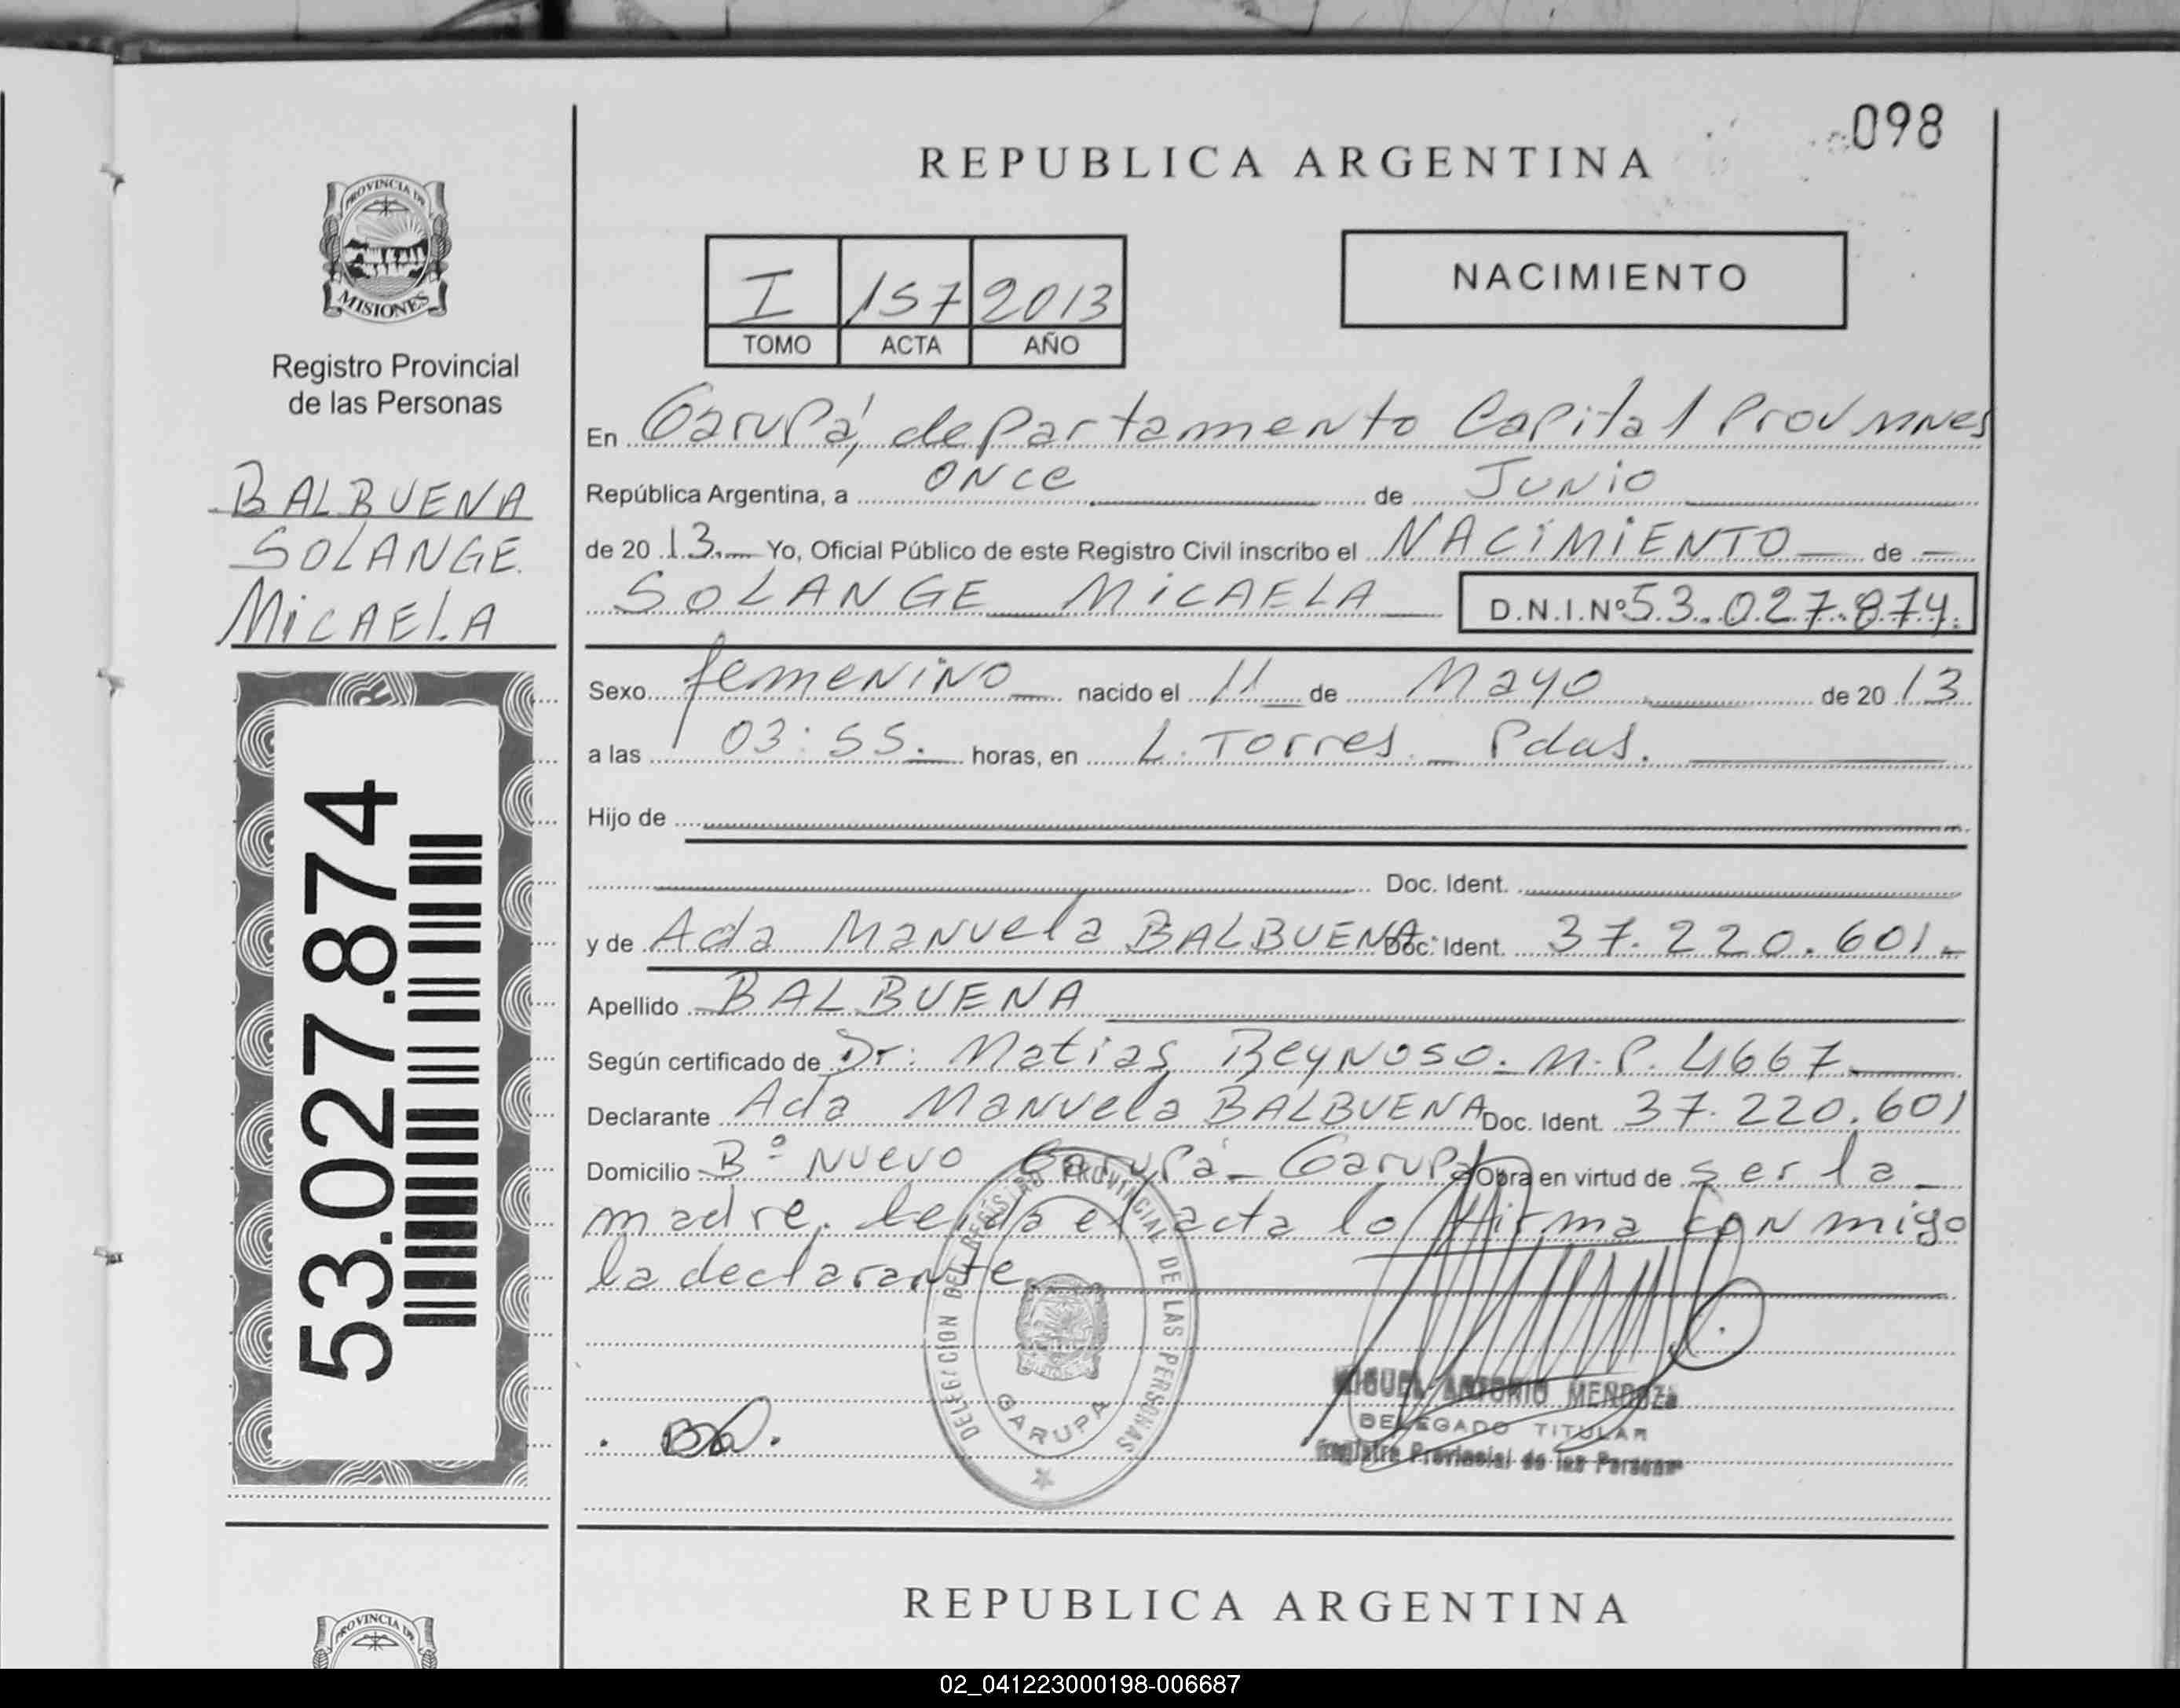 098
REPUBLICA ARGENTINA
PROVINCIA DE
MISIONES
Registro Provincial
de las Personas
BALBUENA
SOLANGE
MiCAELA
53.027.874
I 157 2013
TOMO ACTA AÑO
NACIMIENTO
En Garupá, departamento Capital Prov Mnes
República Argentina, a once de Junio
de 2013 Yo, Oficial Público de este Registro Civil inscribo el NACiMiENTO de
SOLANGE MiCAELA D.N.I.Nº 53.027.874.
Sexo femenino nacido el 11 de Mayo de 2013
a las 03:55. horas, en L. Torres Pdas.
Hijo de
Doc. Ident.
y de Ada Manuela BALBUENA Doc. Ident. 37.220.601.
Apellido BALBUENA
Según certificado de Dr: Matias Reynoso. M.P. 4667
Declarante Ada Manuela BALBUENA Doc. Ident. 37.220.601
Domicilio Bº Nuevo Garupá - Garupá Obra en virtud de ser la
madre. Leida el acta lo firma conmigo
la declarante
DELEGACION DEL REGISTRO PROVINCIAL DE LAS PERSONAS
GARUPA
MIGUEL ANTONIO MENDOZA
DELEGADO TITULAR
Registro Provincial de las Personas
REPUBLICA ARGENTINA
PROVINCIA DE
02_041223000198-006687